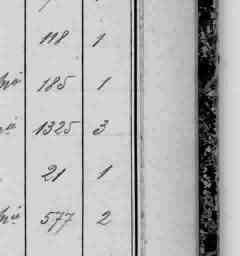 118 1
185 1
1325 3
21 1
577 2